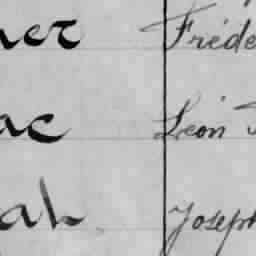 ner Fréde
ac Léon
al Joseph